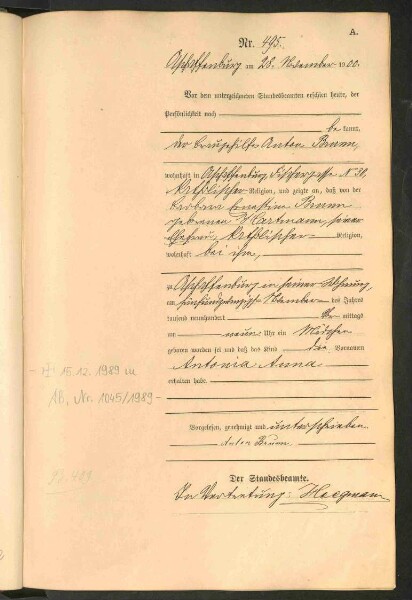 A.
Nr. 495.
Aschaffenburg am 28. November 1900.
Vor dem unterzeichneten Standesbeamten erschien heute, der
Persönlichkeit nach
be kannt,
der Anton Braun,
wohnhaft in Aschaffenburg, Fischergasse N° 31,
katholischer Religion, und zeigte an, daß von der
Barbara Ernestine Braun
geborenen Hartmann, seiner
Ehefrau, katholischer Religion,
wohnhaft bei ihm,
zu Aschaffenburg in seiner Wohnung,
am fünfundzwanzigsten November des Jahres
tausend neunhundert mittags
um neun Uhr ein Mädchen
geboren worden sei und daß das Kind die Vornamen
Antonia Anna
erhalten habe.
15.12.1989 in
AB, Nr. 1045/1989 -
Vorgelesen, genehmigt und unterschrieben
Anton Braun
Der Standesbeamte.
In Vertretung: Hoegmann